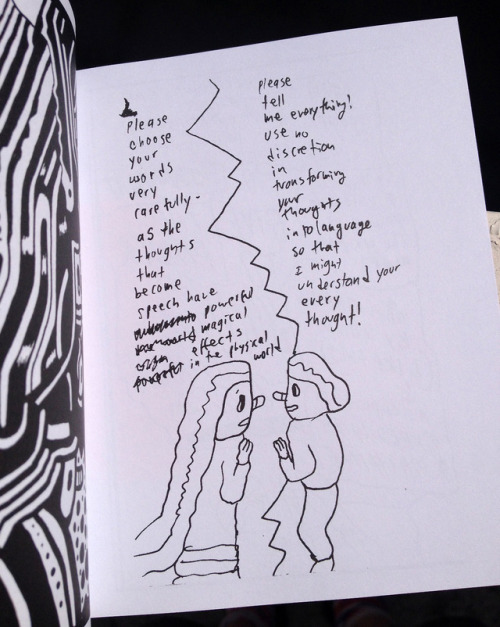 Please
choose
your
words
very
carefully-
as the
thoughts
that
become
speech have
powerful
magical
effects
in the physical
world
please
tell
me everything!
use no
discretion
in
transforming
your
thoughts
into language
so that
I might
understand your
every
thought!